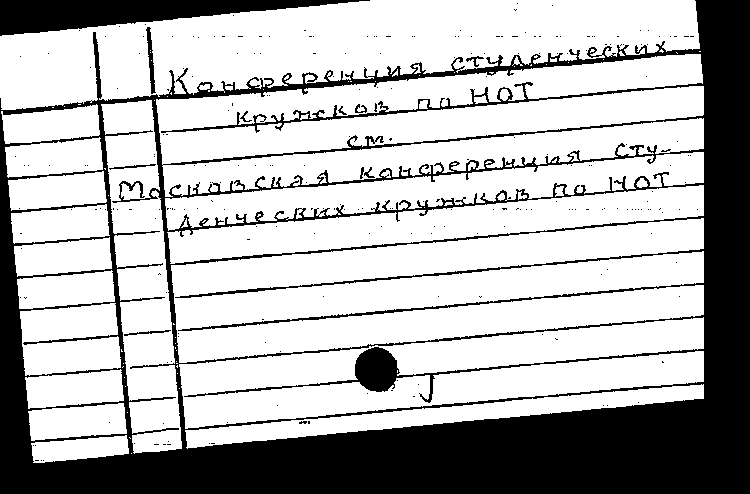 Конференция студенческих
кружков по НОТ
см.
Московская конференция сту-
денческих кружков по НОТ